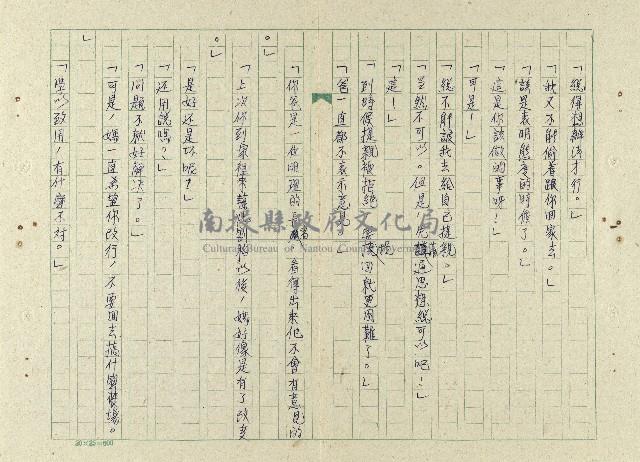 「總得想辦法才行。」
「我又不能偷着跟你回家去。」
「該是表明態度的時候了。」
「這是你該做的事呀!」
「可是!」
「總不能讓我去給自己提親。」
「當然不可以。但是!先講通思想總可以吧!」
「這!」
「到時候提親被拒絕,要挽回就更困難了。」
「爸一直都不表示意見。」
「你爸是一位明理的長者,看得出來他不會有意見的
。」
「上次你到家裡來 以後,媽好像是有了改變
。」
「是好還是壞呢?」
「還用說嗎?」
「問題不就好解決了。」
「可是,媽一直希望你改行,不要回去搞什麼農場。
」
「學以致用,有什麼不對。」
南投縣政府文化局
Cultural Bureau of Nantou County Government
20×25=500